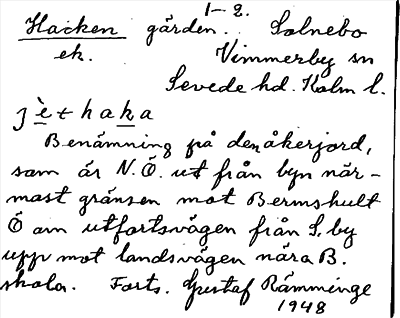 1-2.
Hacken gården. Solnebo
ek. Vimmerby sn
Sevede hd. Kalm l.
jèthaka
Benämning på den åkerjord,
som är N.Ö. ut från byn när-
mast gränsen mot Bermshult
Ö om utfartsvägen från S. by
upp mot landsvägen nära B.
skola. Forts. Gustaf Rämminge
1948